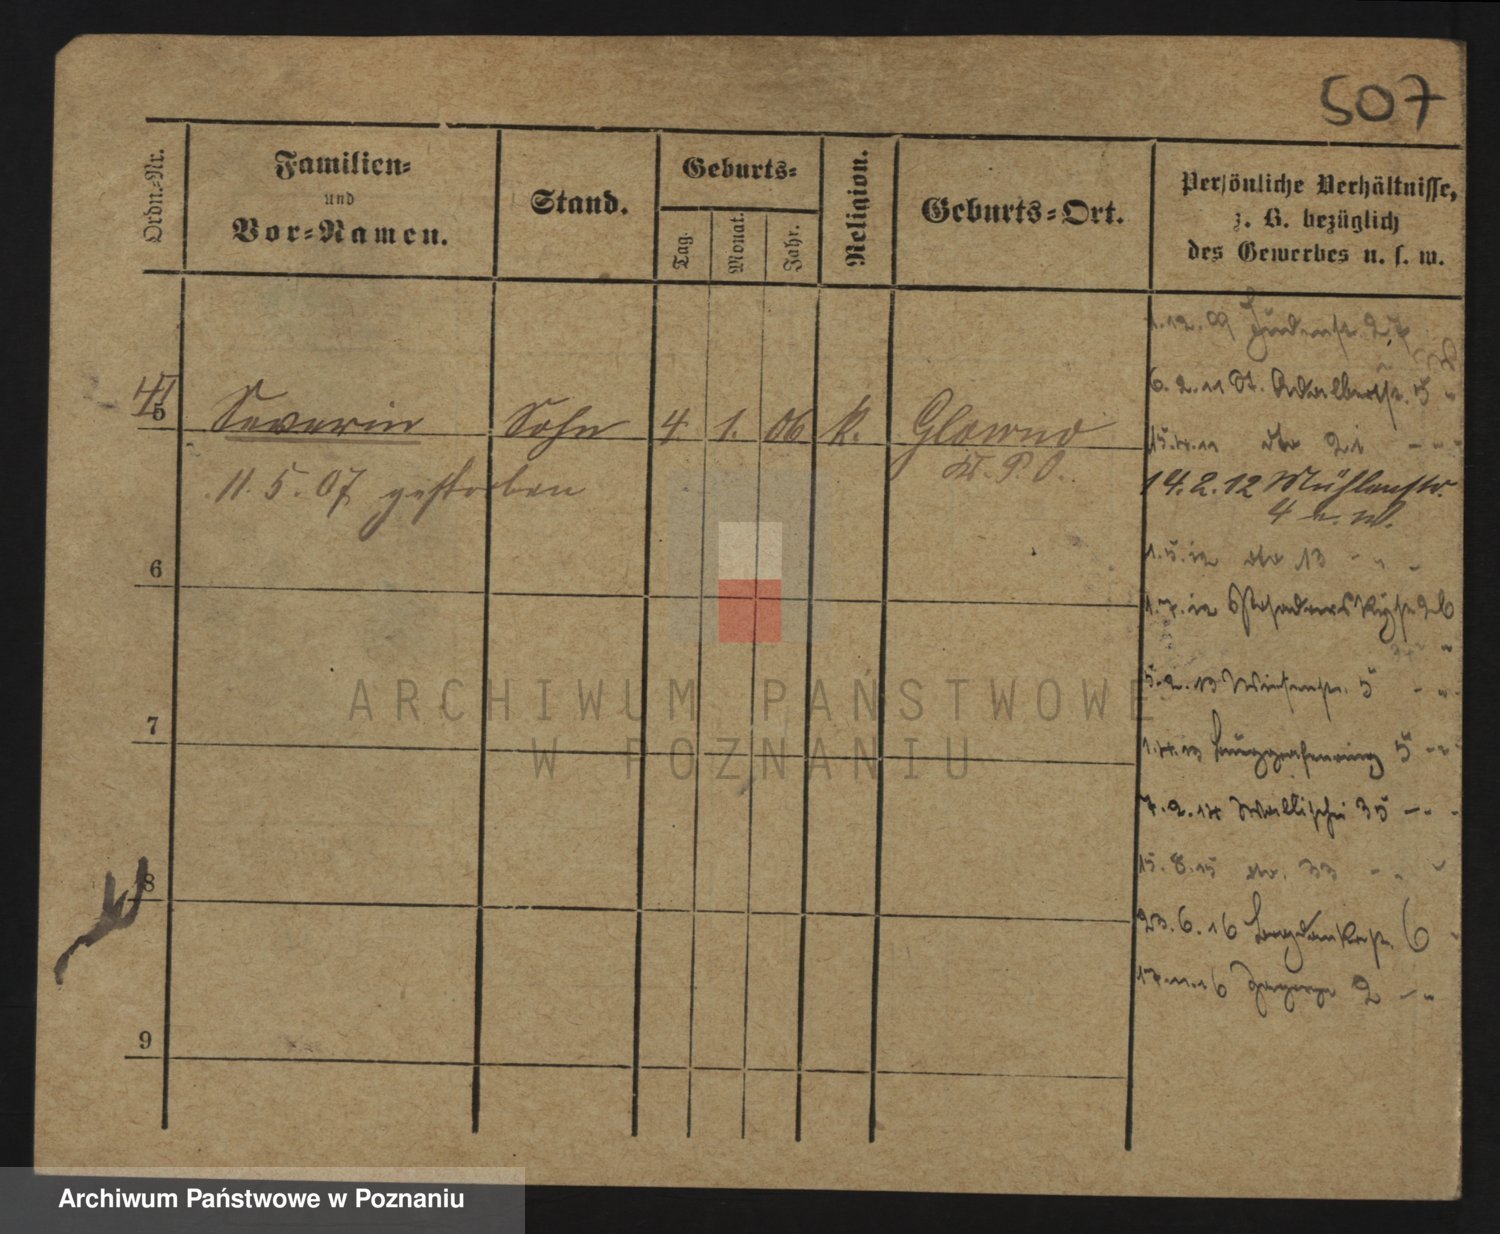 507
Ordn.-Nr.
Familien-
und
Vor-Namen.
Stand.
Geburts-
Tag.
Monat.
Jahr.
Religion.
Geburts-Ort.
Persönliche Verhältnisse,
z. B. bezüglich
des Gewerbes u. s. w.
1.12.09 Judenstr. 27
6.2.11 St. Adalbertstr. 5 "
5 Severin Sohn 4. 1. 06 k. Glowno
Kr. P. O.
15.4.11 dto 21 - " -
11.5.07 gestorben
14.2.12 Mühlenstr.
4 u. w.
1.5.12 dto 13 - " -
6
1.7.12
5.2.13 Wiesenstr. 5 - " -
7
1.4.13 Burggrafenring 5 - " -
7.2.14 Wallischei 35 - " -
15.8.15 dto. 33 - " -
8
23.6.16 Bogdankastr. 6
17.11.16 Zagorze 2 - "
9
ARCHIWUM PAŃSTWOWE
W POZNANIU
Archiwum Państwowe w Poznaniu